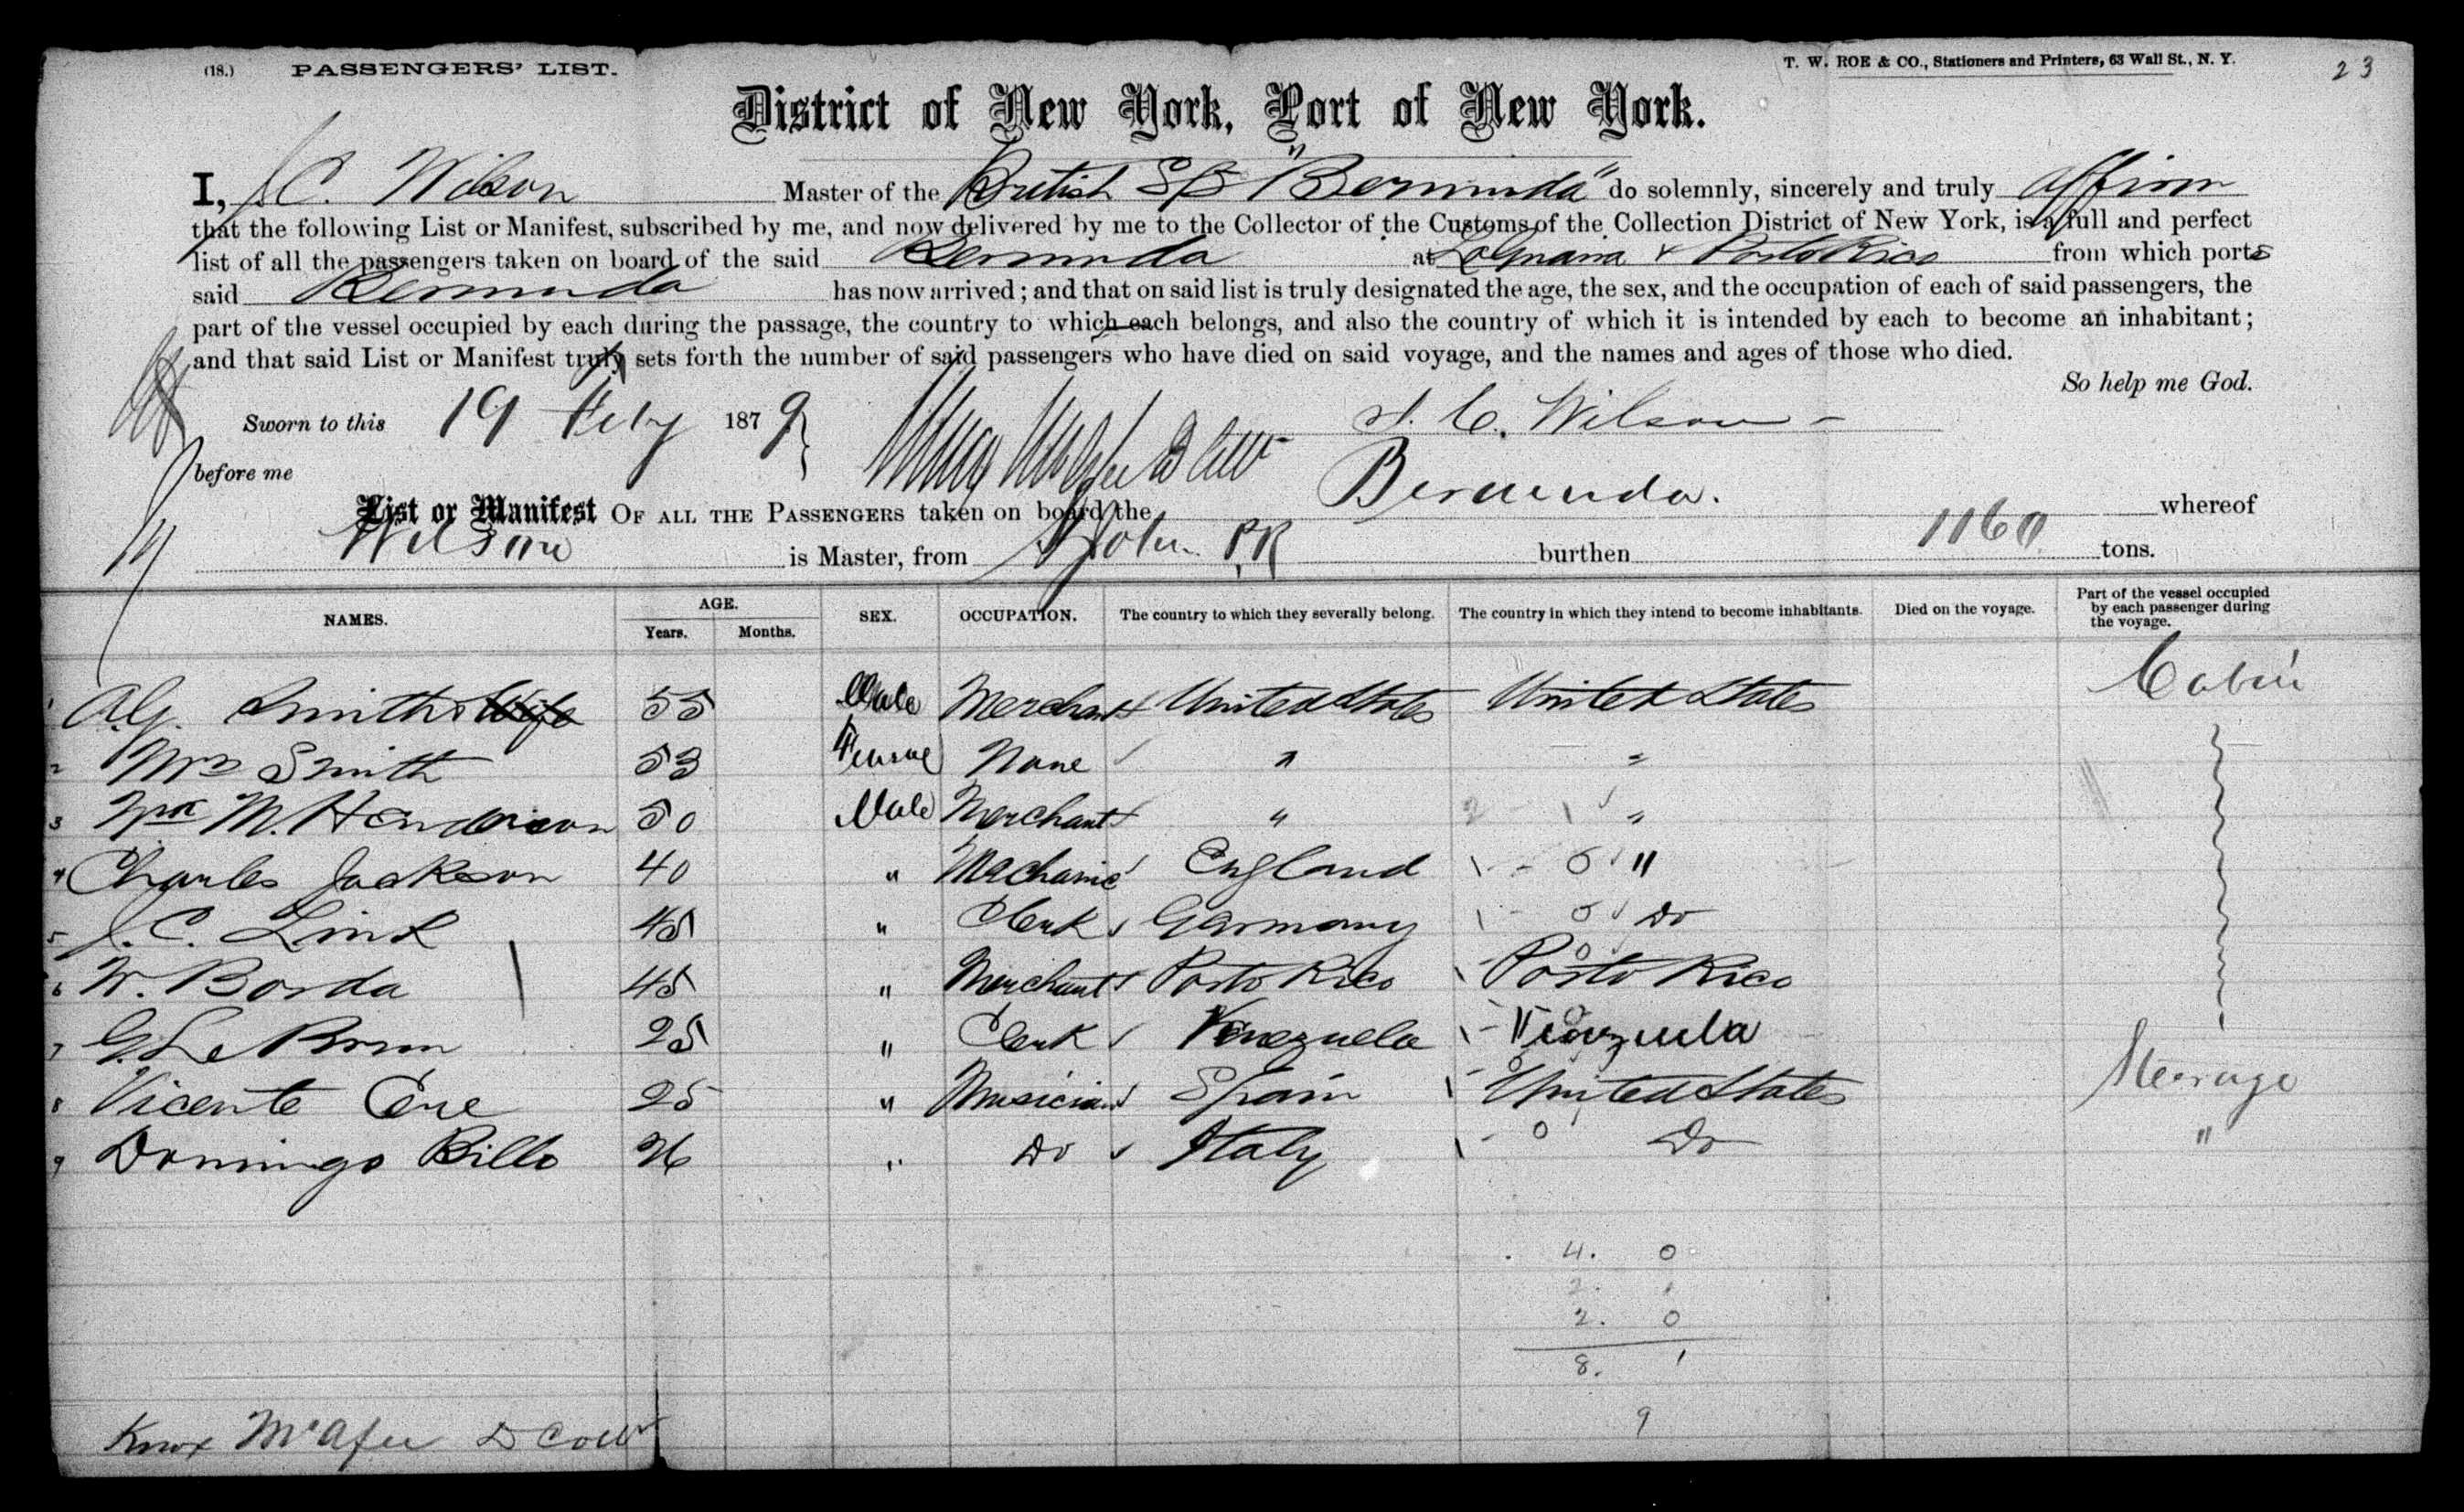 (18.) PASSENGERS' LIST.
T. W. ROE & CO., Stationers and Printers, 63 Wall St., N. Y.
23
District of New York, Port of New York.
I, J.C. Wilson Master of the British SS "Bermuda" do solemnly, sincerely and truly affirm
that the following List or Manifest, subscribed by me, and now delivered by me to the Collector of the Customs of the Collection District of New York, is a full and perfect
list of all the passengers taken on board of the said Bermuda at LaGuaira & Porto Rico from which ports
said Bermuda has now arrived; and that on said list is truly designated the age, the sex, and the occupation of each of said passengers, the
part of the vessel occupied by each during the passage, the country to which each belongs, and also the country of which it is intended by each to become an inhabitant;
and that said List or Manifest truly sets forth the number of said passengers who have died on said voyage, and the names and ages of those who died.
So help me God.
Sworn to this 19 Feby 1879 J. C. Wilson
before me
List or Manifest OF ALL THE PASSENGERS taken on board the Bermuda. whereof
Wilson is Master, from St John P.R burthen 1160 tons.
NAMES. AGE. Years. Months. SEX. OCCUPATION. The country to which they severally belong. The country in which they intend to become inhabitants. Died on the voyage. Part of the vessel occupied by each passenger during the voyage.
1 A.G. Smith & Wife 55 Male Merchant United States United States Cabin
2 Mrs Smith 53 Female None " "
3 Wm M. Henderson 50 Male Merchant " "
4 Charles Jackson 40 " Mechanic England "
5 J. C. Lind 45 " Clerk Germany Do
6 W. Borda 45 " Merchant Porto Rico Porto Rico
7 G. Le Brun 25 " Clerk Venezuela Venezuela
8 Vicente Cere 25 " Musician Spain United States Steerage
9 Domingo Billo 26 " Do Italy Do "
4. 0
2. 1
2. 0
8. 1
9
Knox McAfee D Collr